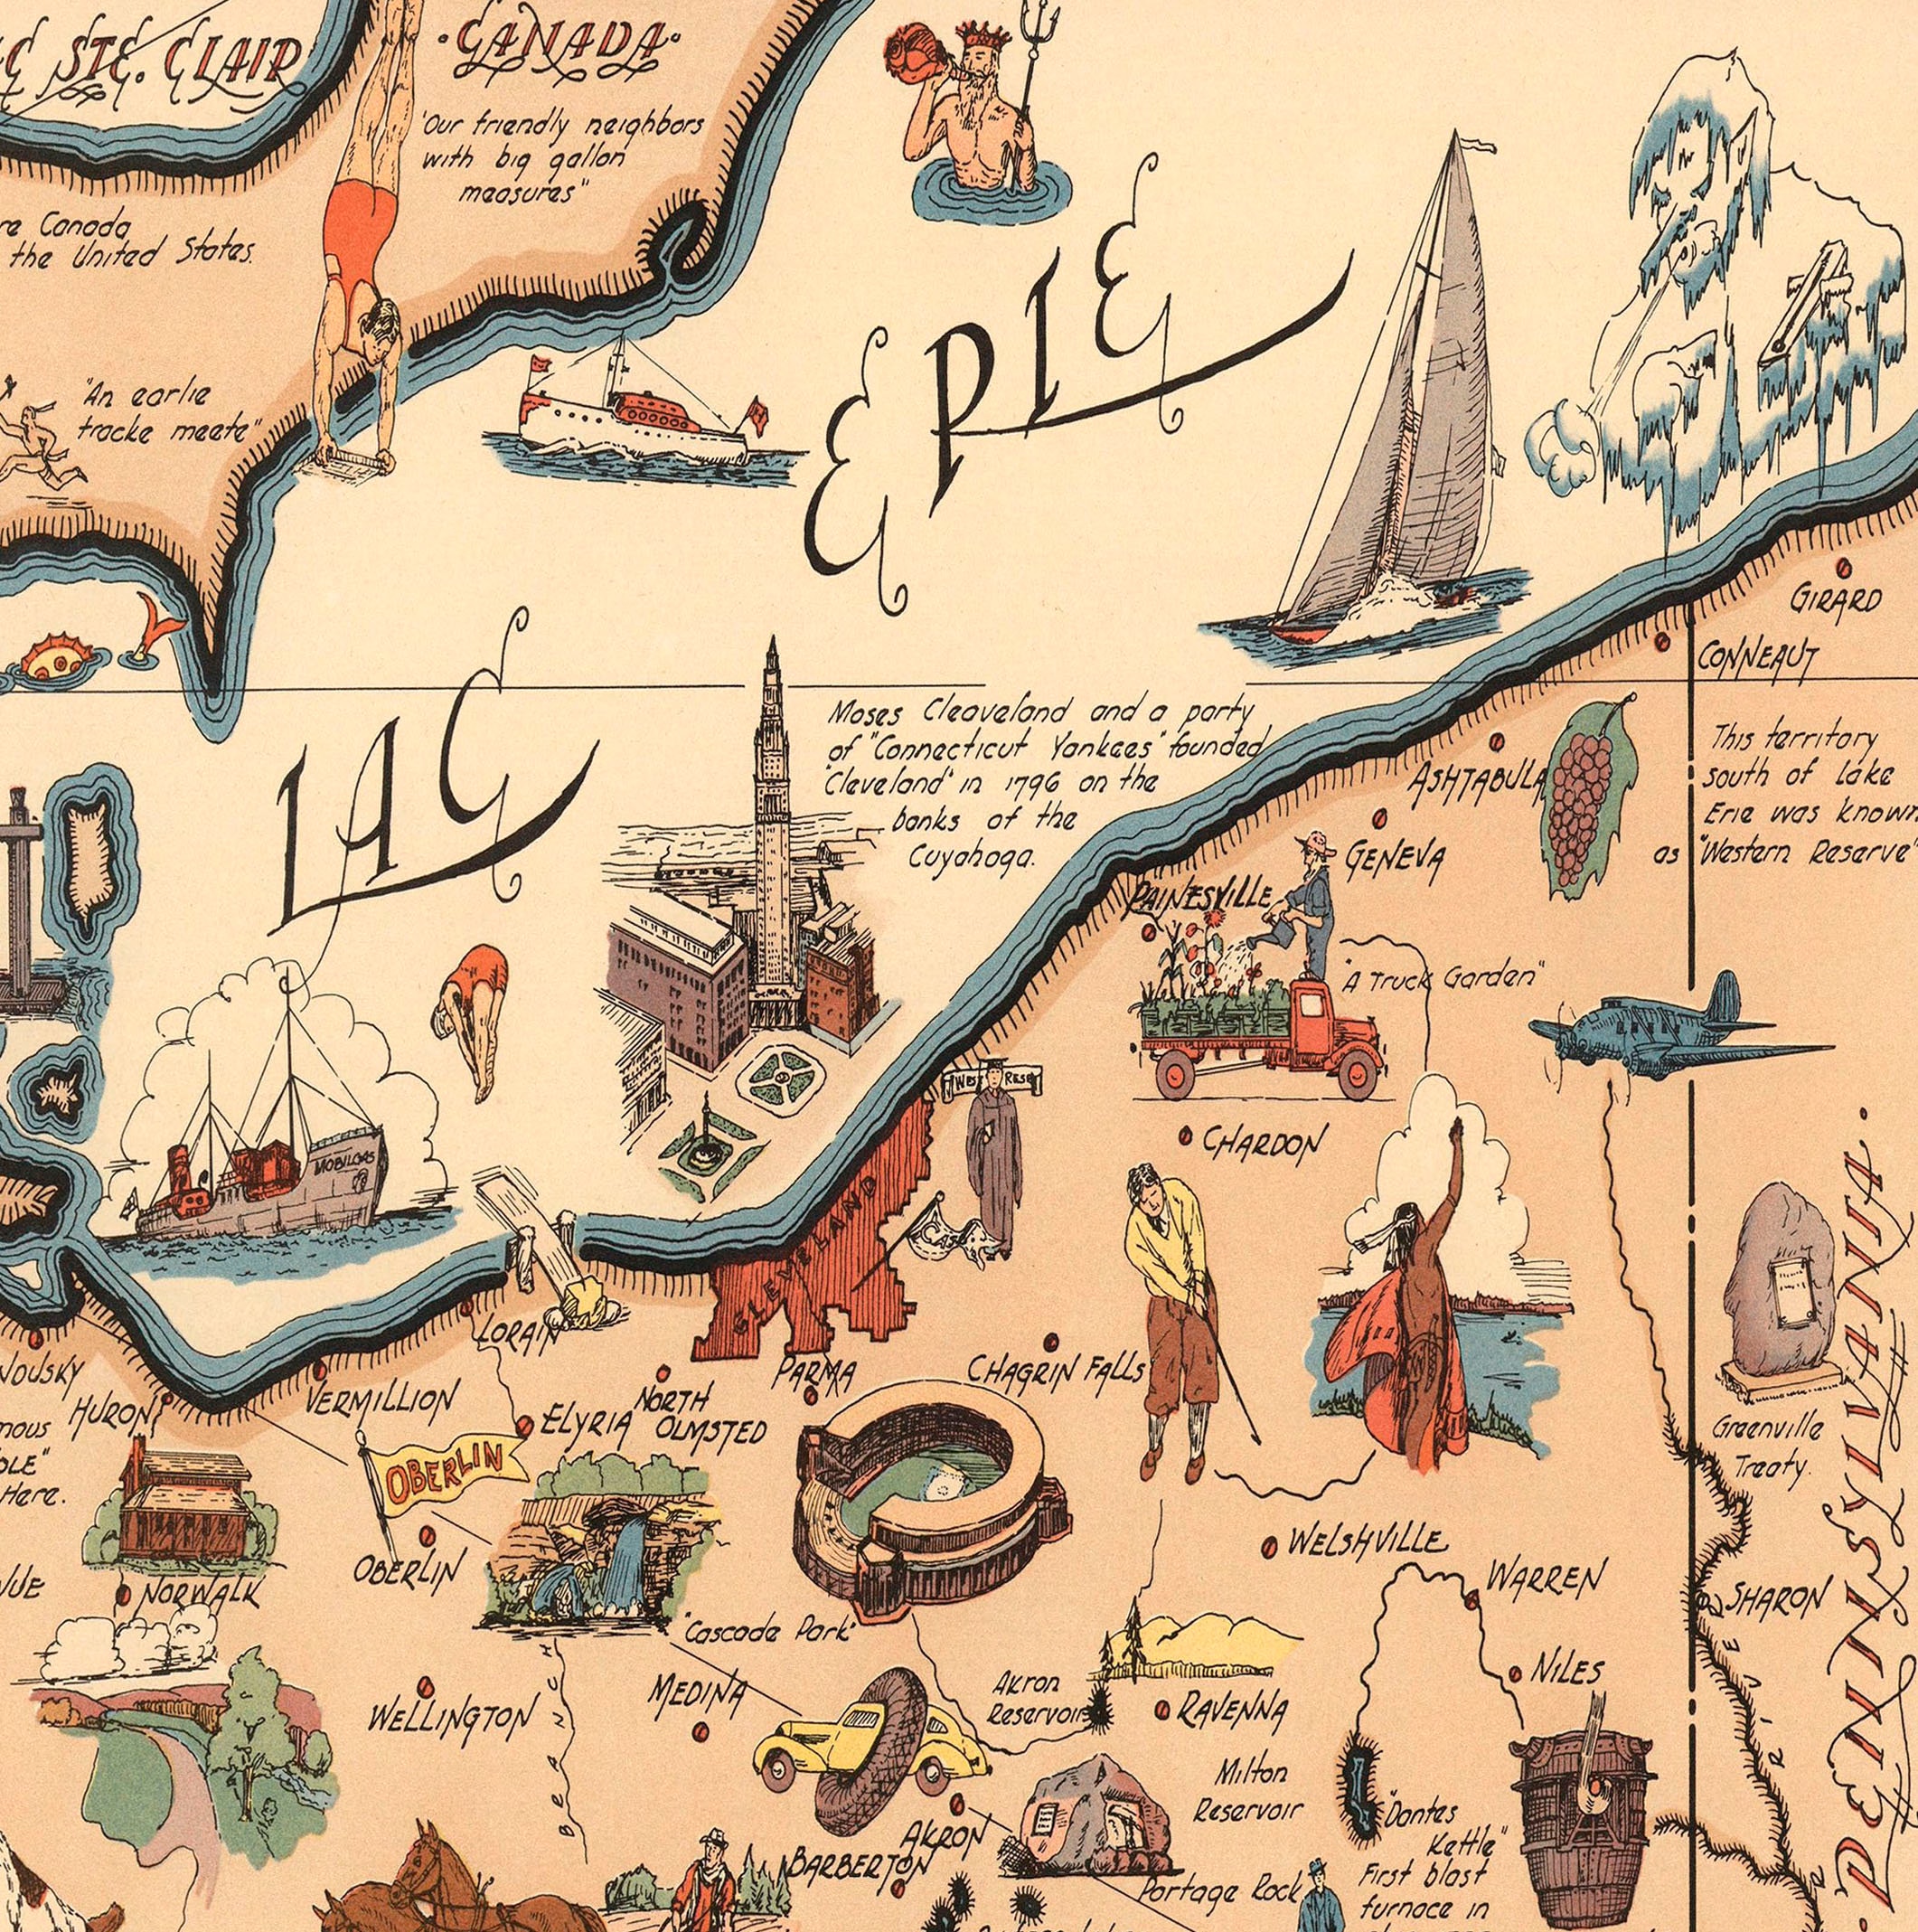 STE. CLAIR
·CANADA·
"Our friendly neighbors
with big gallon
measures"
Canada
the United States.
"An earlie
tracke meete"
LAC ERIE
GIRARD
CONNEAUT
Moses Cleaveland and a party
of "Connecticut Yankees" founded
"Cleveland" in 1796 on the
banks of the
Cuyahoga.
This territory
south of Lake
Erie was known
as "Western Reserve"
ASHTABULA
GENEVA
PAINESVILLE
"A Truck Garden"
WEST RESE
CHARDON
MOBILGAS
CASE
CLEVELAND
LORAIN
PARMA
CHAGRIN FALLS
HURON
VERMILLION
ELYRIA
NORTH
OLMSTED
OBERLIN
OBERLIN
Here.
NORWALK
"Cascade Park"
Greenville
Treaty.
PENNSYLVANIA.
WELSHVILLE
WARREN
SHARON
NILES
WELLINGTON
MEDINA
BRANCH
Akron
Reservoir
RAVENNA
Milton
Reservoir
RIVER
AKRON
BARBERTON
Portage Rock
"Dantes
Kettle"
First blast
furnace in